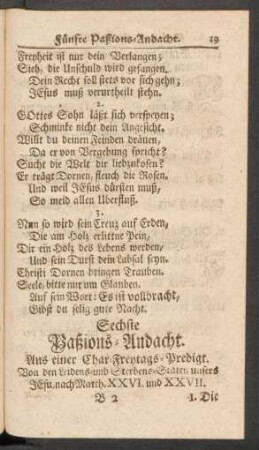 Fünfte Paßions-Andacht. 19
Freyheit ist nur dein Verlangen;
Sieh, die Unschuld wird gefangen.
Dein Recht soll stets vor sich gehn;
JEsus muß verurtheilt stehn.
2.
GOttes Sohn läßt sich verspeyen;
Schmincke nicht dein Angesicht.
Willt du deinen Feinden dräuen,
Da er von Vergebung spricht?
Sucht die Welt dir liebzukosen?
Er trägt Dornen, fleuch die Rosen.
Und weil JEsus dürsten muß,
So meid allen Uberfluß.
3.
Nun so wird sein Creuz auf Erden,
Die am Holz erlittne Pein,
Dir ein Holz des Lebens werden,
Und sein Durst dein Labsal seyn.
Christi Dornen bringen Trauben.
Seele, bitte nur um Glauben.
Auf sein Wort: Es ist vollbracht,
Gibst du selig gute Nacht.
Sechste
Paßions-Andacht.
Aus einer Char-Freytags-Predigt.
Von den Leidens-und Sterbens-Stäten unsers
JEsu, nach Matth. XXVI. und XXVII.
B 2 1. Die